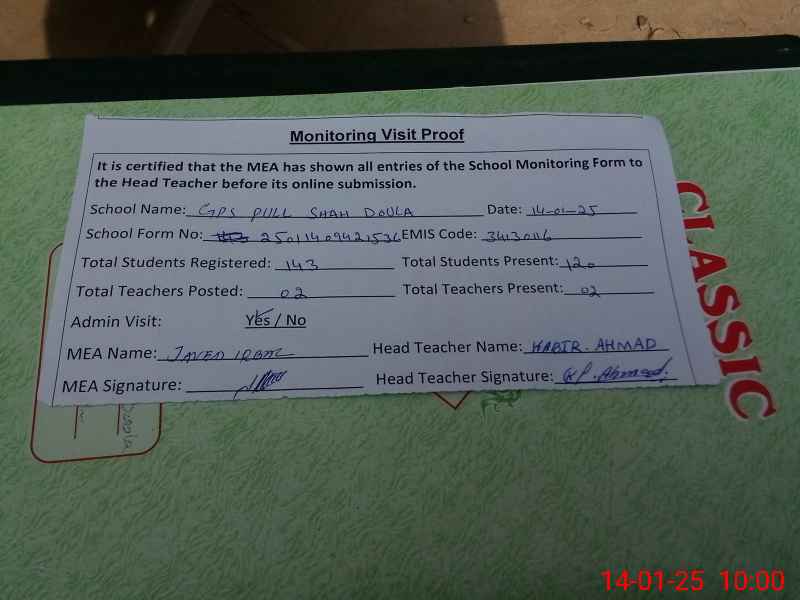 Monitoring Visit Proof
It is certified that the MEA has shown all entries of the School Monitoring Form to
the Head Teacher before its online submission.
School Name: GPS PULL SHAH DOULA Date: 14-01-25
School Form No: 25011409421536 EMIS Code: 34130116
Total Students Registered: 143 Total Students Present: 120
Total Teachers Posted: 02 Total Teachers Present: 02
Admin Visit: Yes / No
MEA Name: JAVED IQBAL Head Teacher Name: KABIR. AHMAD
MEA Signature: Head Teacher Signature: Ahmad.
CLASSIC
14-01-25 10:00